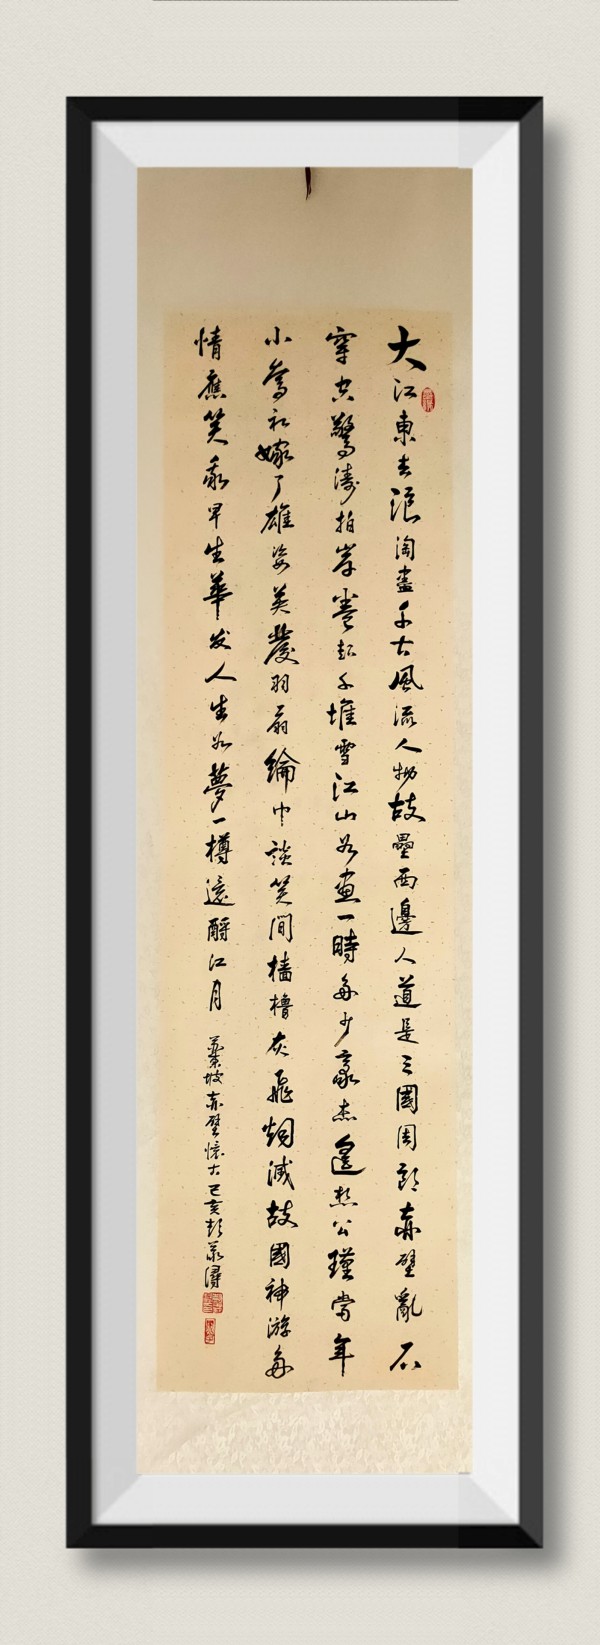 大江東去浪淘盡千古風流人物故壘西邊人道是三國周郎赤壁亂石
穿空驚濤拍岸卷起千堆雪江山如畫一時多少豪杰遙想公瑾當年
小喬初嫁了雄姿英發羽扇綸巾談笑間檣櫓灰飛烟滅故國神游多
情應笑我早生華发人生如夢一樽還酹江月
蘇東坡赤壁懷古己亥彭